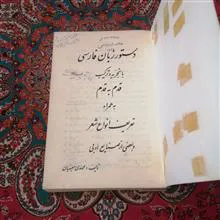 دستور زبان فارسی
با تجزیه و ترکیب
قدم به قدم
به همراه
تعریف انواع شعر
و بعضی از صنایع ادبی